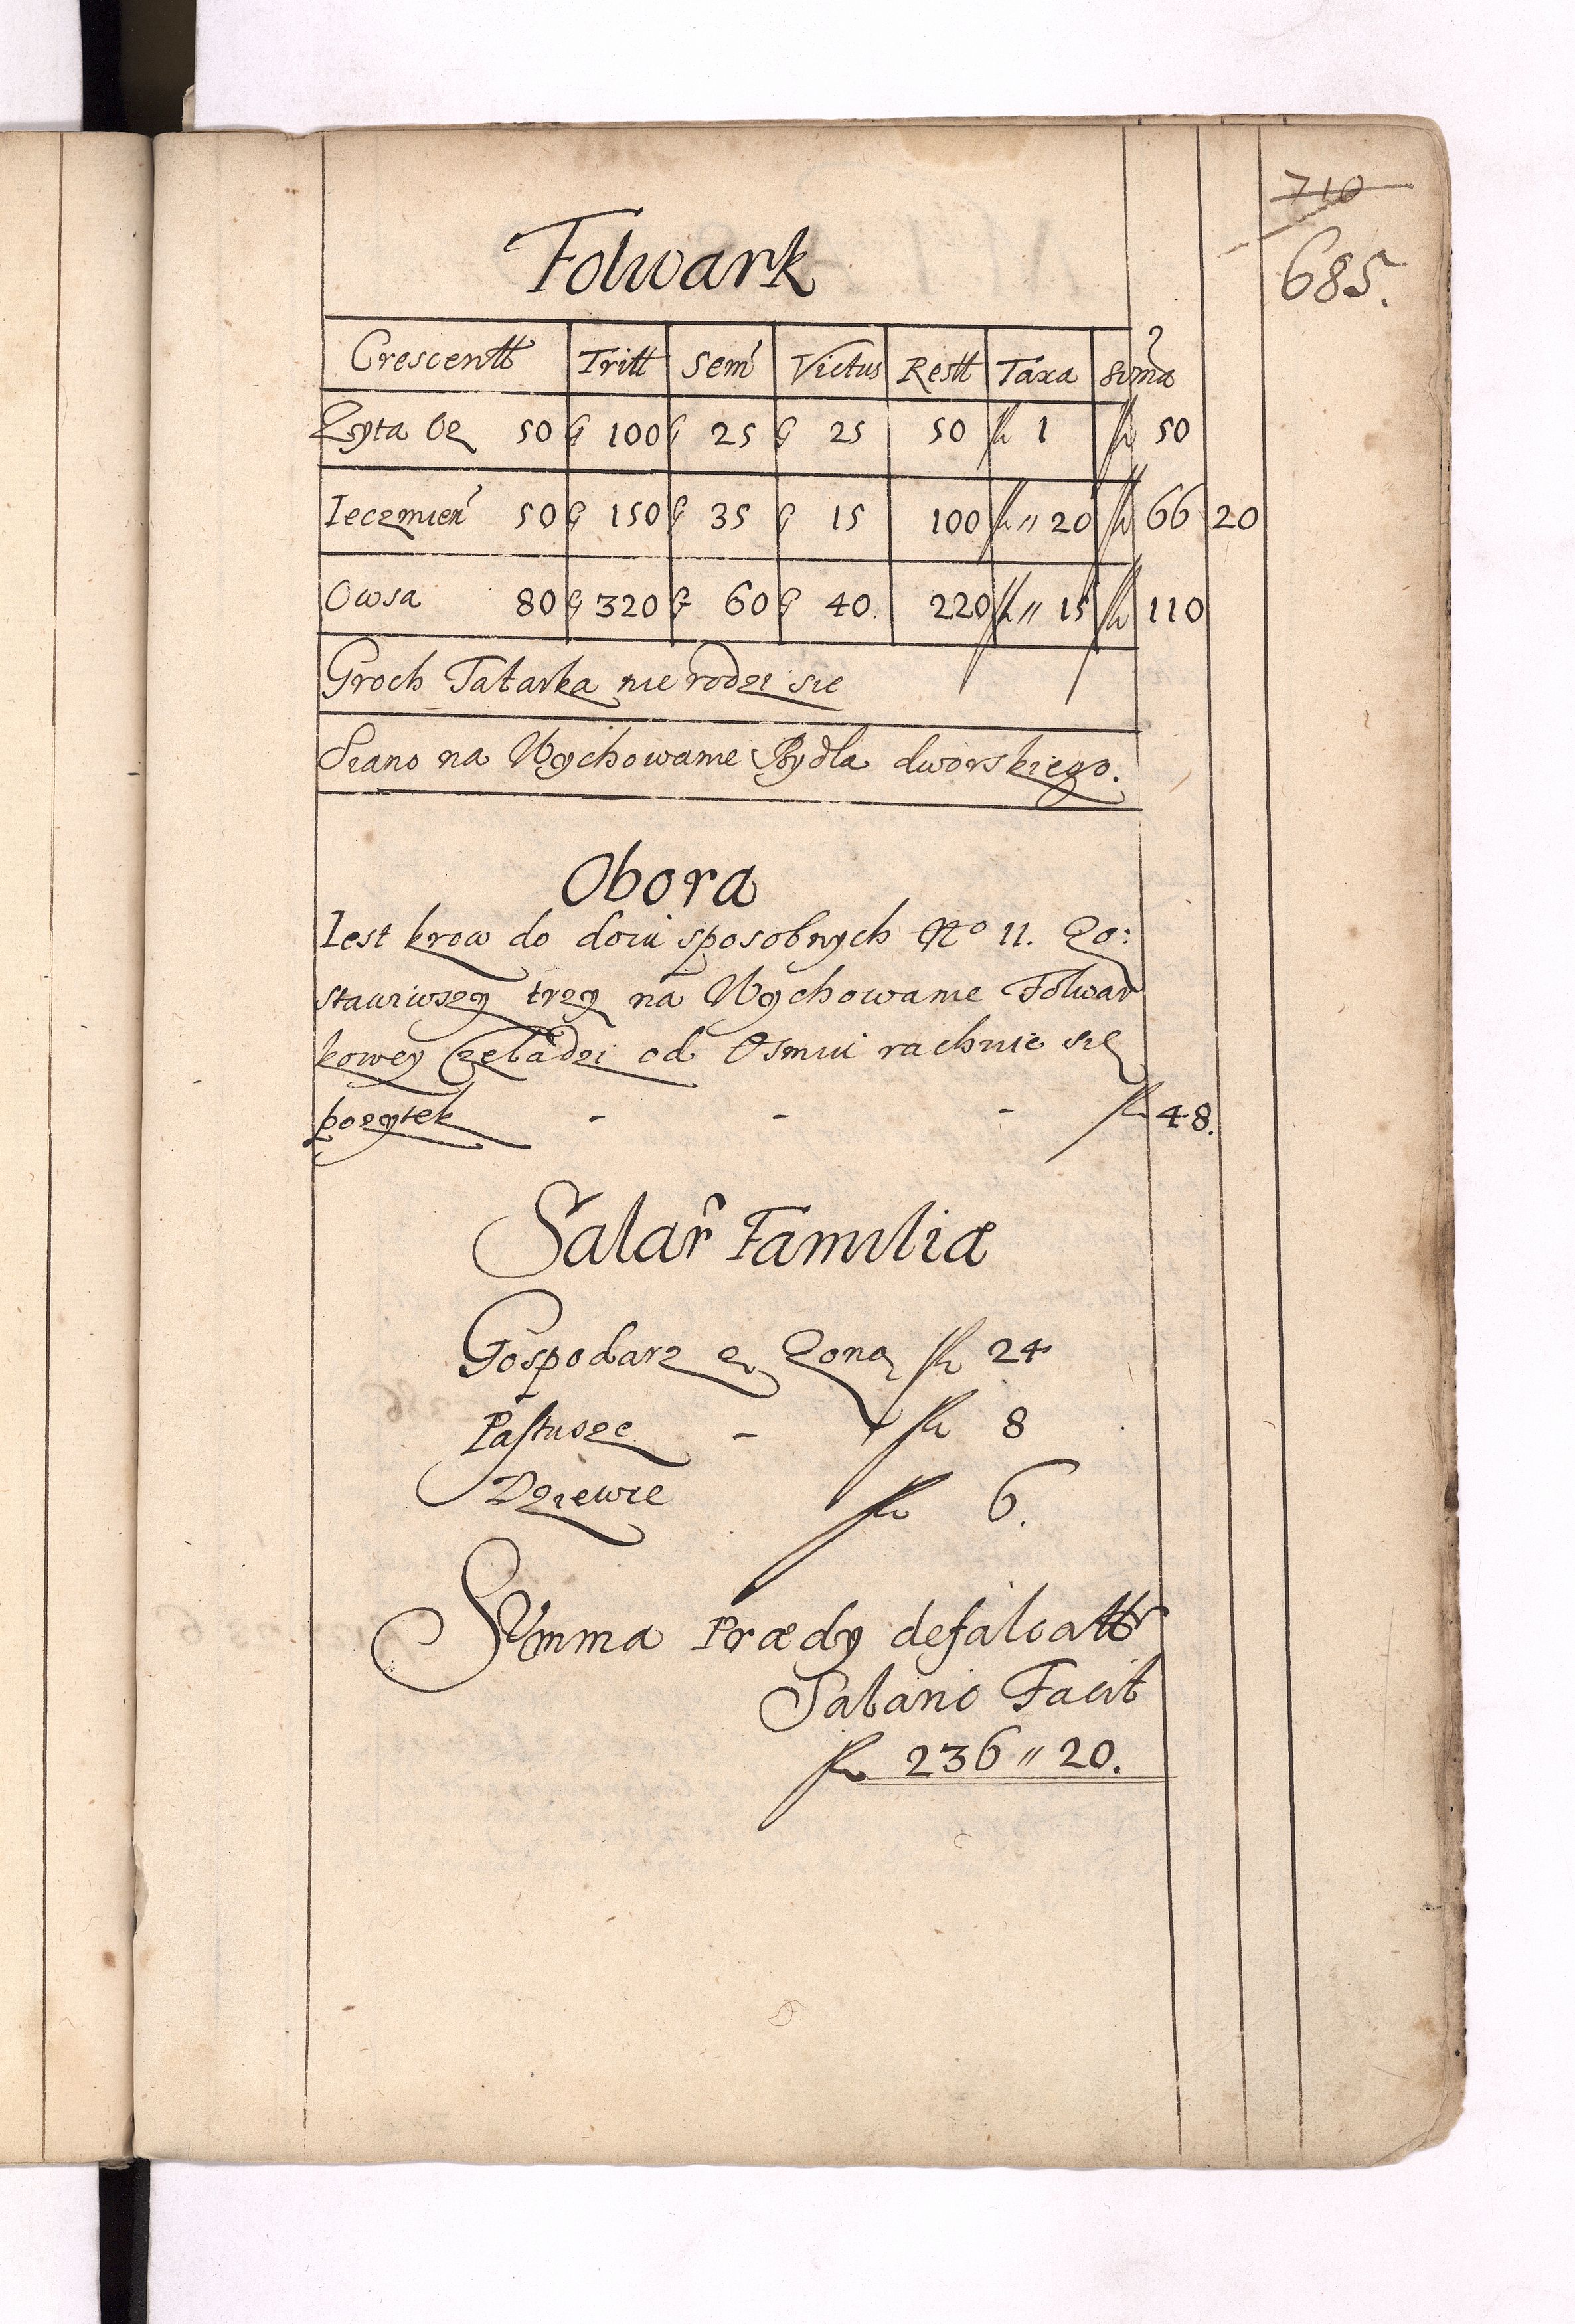 710
685.
Folwark
Crescentt Tritt Sem Victus Restt Taxa Suma
Zyta Oz 50 G 100 G 25 G 25 50 fl 1 fl 50
Ieczmien 50 G 150 G 35 G 15 100 fl " 20 fl 66 20
Owsa 80 G 320 G 60 G 40. 220 fl " 15 fl 110
Groch Tatarka nie rodzi sie
Siano na Wychowanie Bydła dworskiego.
Obora
Iest krow do doiu sposobnych No 11. Zo:
stawiwszy trzy na Wychowanie Folwar
kowey Czeladzi od Osmiu rachuie się
pozytek - - - fl 48.
Salar Familiæ
Gospodarz z Zoną fl 24
Pastusze - fl 8
Dziewce fl 6.
Summa Prædy defalcattr
Salario Facit
fl 236 " 20.